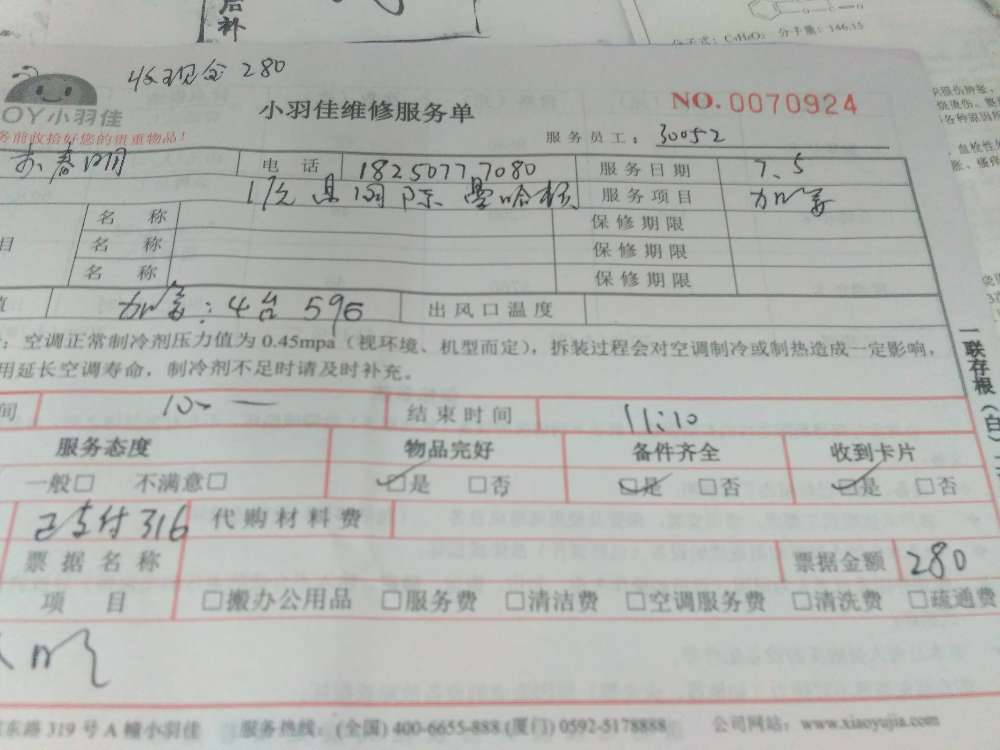 后补
分子式：C₉H₆O₂ 分子量：146.15
收现金 280
OY小羽佳
小羽佳维修服务单
NO. 0070924
务前收拾好您的贵重物品！
服务员工：30052
电话 18250777080 服务日期 7、5
服务项目 加氨
名称 保修期限
目 名称 保修期限
名称 保修期限
值 4台 596 出风口温度
：空调正常制冷剂压力值为 0.45mpa（视环境、机型而定），拆装过程会对空调制冷或制热造成一定影响，
用延长空调寿命，制冷剂不足时请及时补充。
一联存根（白）
间 结束时间 11:10
服务态度 物品完好 备件齐全 收到卡片
一般□ 不满意□ □是 □否 □是 □否 □是 □否
已支付316 代购材料费
票据名称 票据金额 280
项目 □搬办公用品 □服务费 □清洁费 □空调服务费 □清洗费 □疏通费
东路 319 号 A 幢小羽佳 服务热线：(全国) 400-6655-888 (厦门) 0592-5178888 公司网站：www.xiaoyujia.com